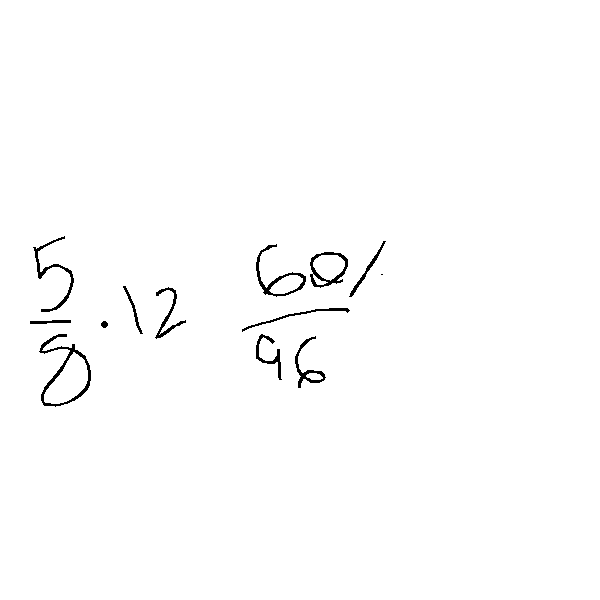 5/8 · 12 60/96